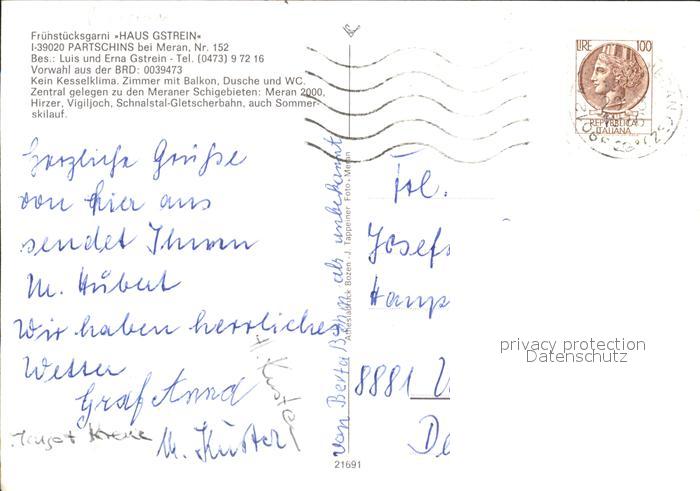 Frühstücksgarni »HAUS GSTREIN«
I-39020 PARTSCHINS bei Meran, Nr. 152
Bes.: Luis und Erna Gstrein - Tel. (0473) 9 72 16
Vorwahl aus der BRD: 0039473
Kein Kesselklima. Zimmer mit Balkon, Dusche und WC.
Zentral gelegen zu den Meraner Schigebieten: Meran 2000,
Hirzer, Vigiljoch, Schnalstal-Gletscherbahn, auch Sommer-
skilauf.
Herzliche Grüße
von hier aus
sendet Ihnen
M. Hubert
Wir haben herrliches
Wetter
Graf Anna
M. Kuster
M. Kuster
von Berta als unbekannt
J. Tappeiner Foto - Meran
Bozen
21691
LIRE 100
REPUBBLICA
ITALIANA
Frl.
Josefs
Haup
8881
De
privacy protection
Datenschutz